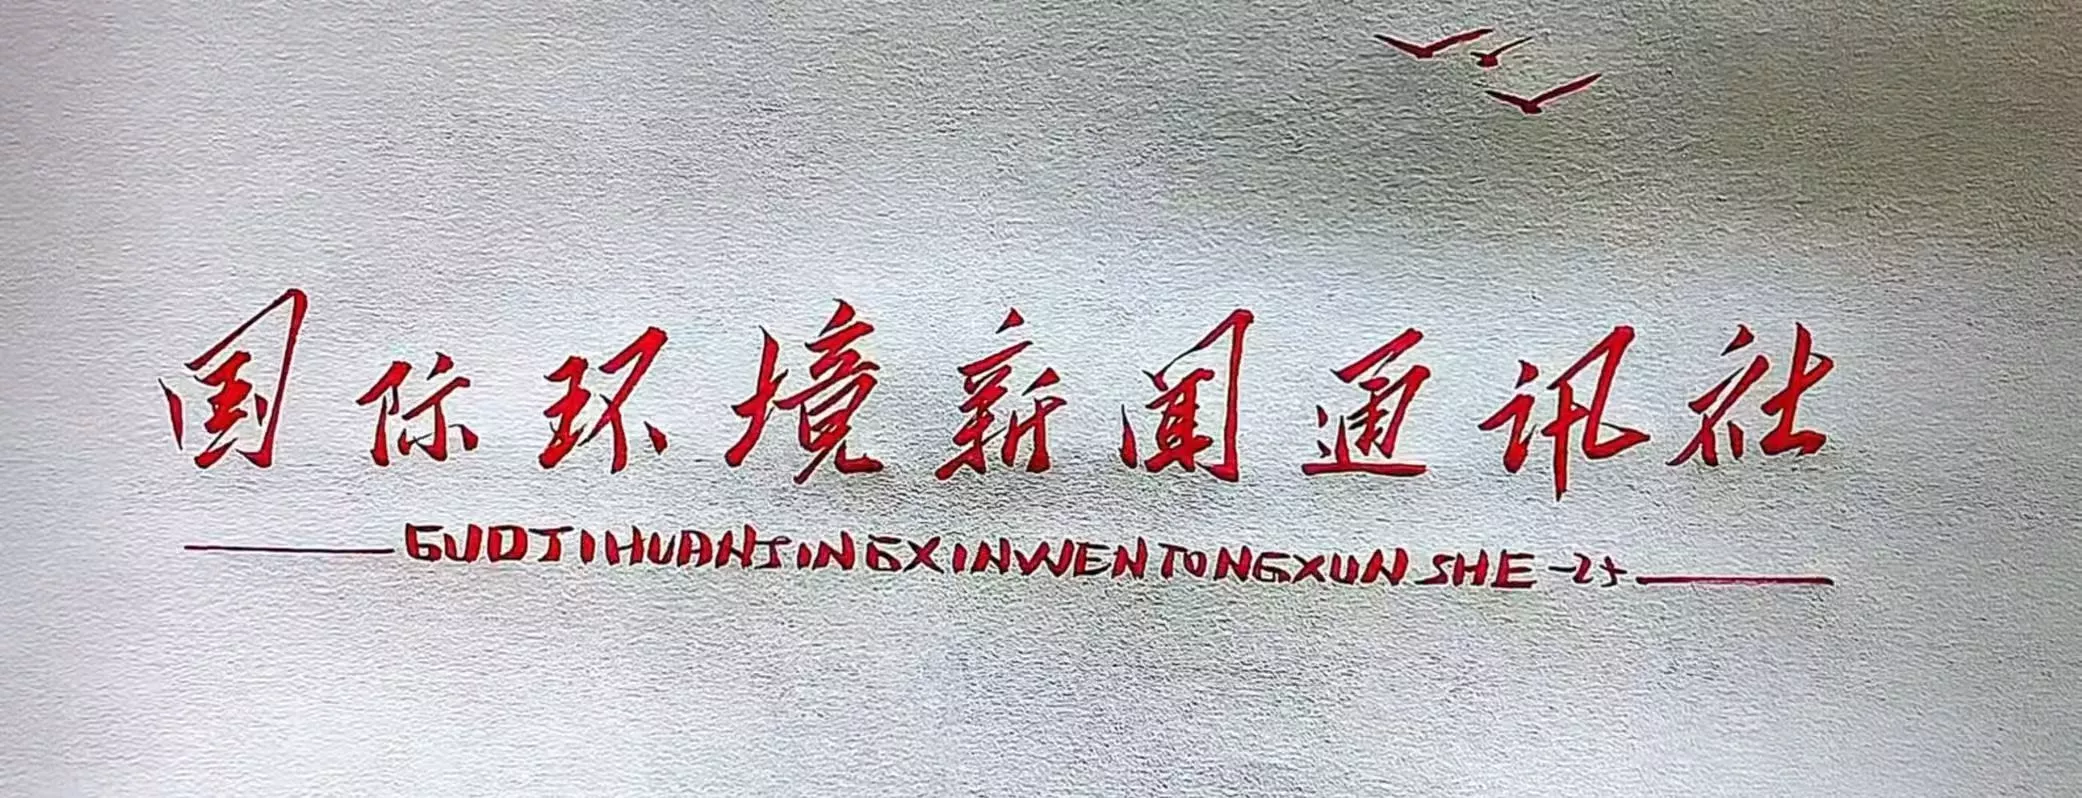 国际环境新闻通讯社
GUOJIHUANJINGXINWENTONGXUNSHE